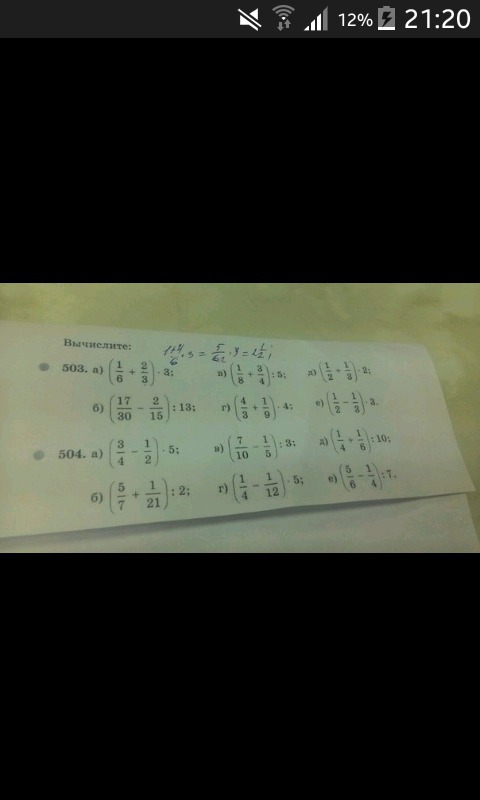 12% 21:20
Вычислите:
(1+4)/6 · 3 = 5/6 2 · 3 = 2 1/2;
503. а) (1/6 + 2/3) · 3; в) (1/8 + 3/4) : 5; д) (1/2 + 1/3) · 2;
б) (17/30 − 2/15) : 13; г) (4/3 + 1/9) · 4; е) (1/2 − 1/3) · 3.
504. а) (3/4 − 1/2) · 5; в) (7/10 − 1/5) : 3; д) (1/4 + 1/6) : 10;
б) (5/7 + 1/21) : 2; г) (1/4 − 1/12) · 5; е) (5/6 − 1/4) : 7.